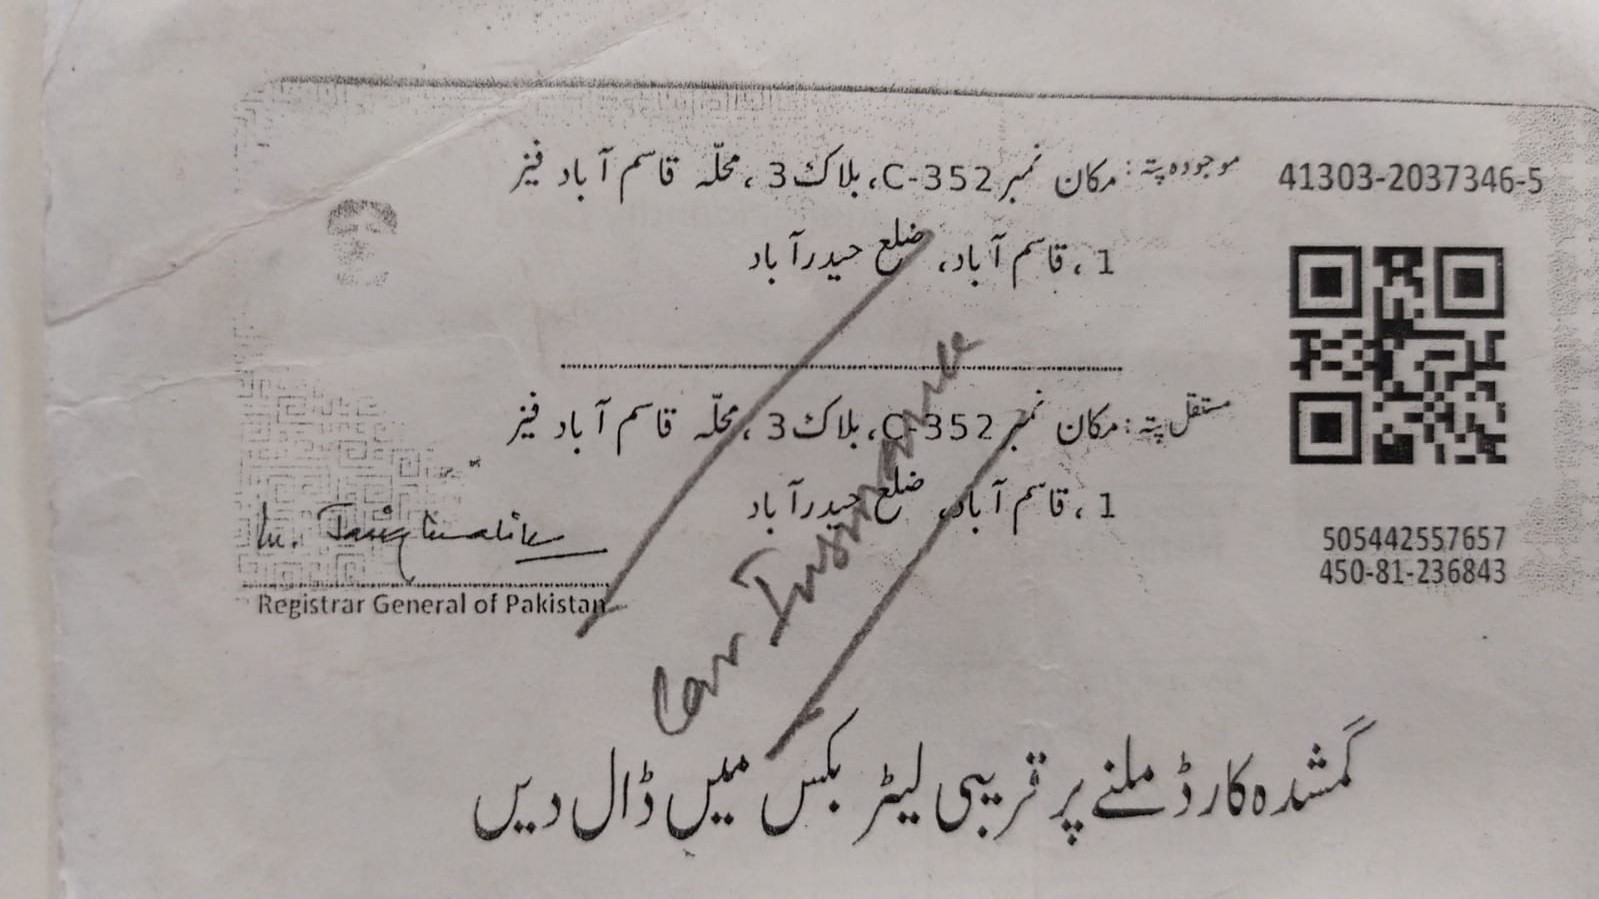 41303-2037346-5
موجودہ پتہ: مکان نمبر C-352، بلاک 3، محلّہ قاسم آباد فیز
1، قاسم آباد، ضلع حیدرآباد
مستقل پتہ: مکان نمبر C-352، بلاک 3، محلّہ قاسم آباد فیز
1، قاسم آباد، ضلع حیدرآباد
505442557657
450-81-236843
Registrar General of Pakistan
Car Insurance
گمشدہ کارڈ ملنے پر قریبی لیٹر بکس میں ڈال دیں